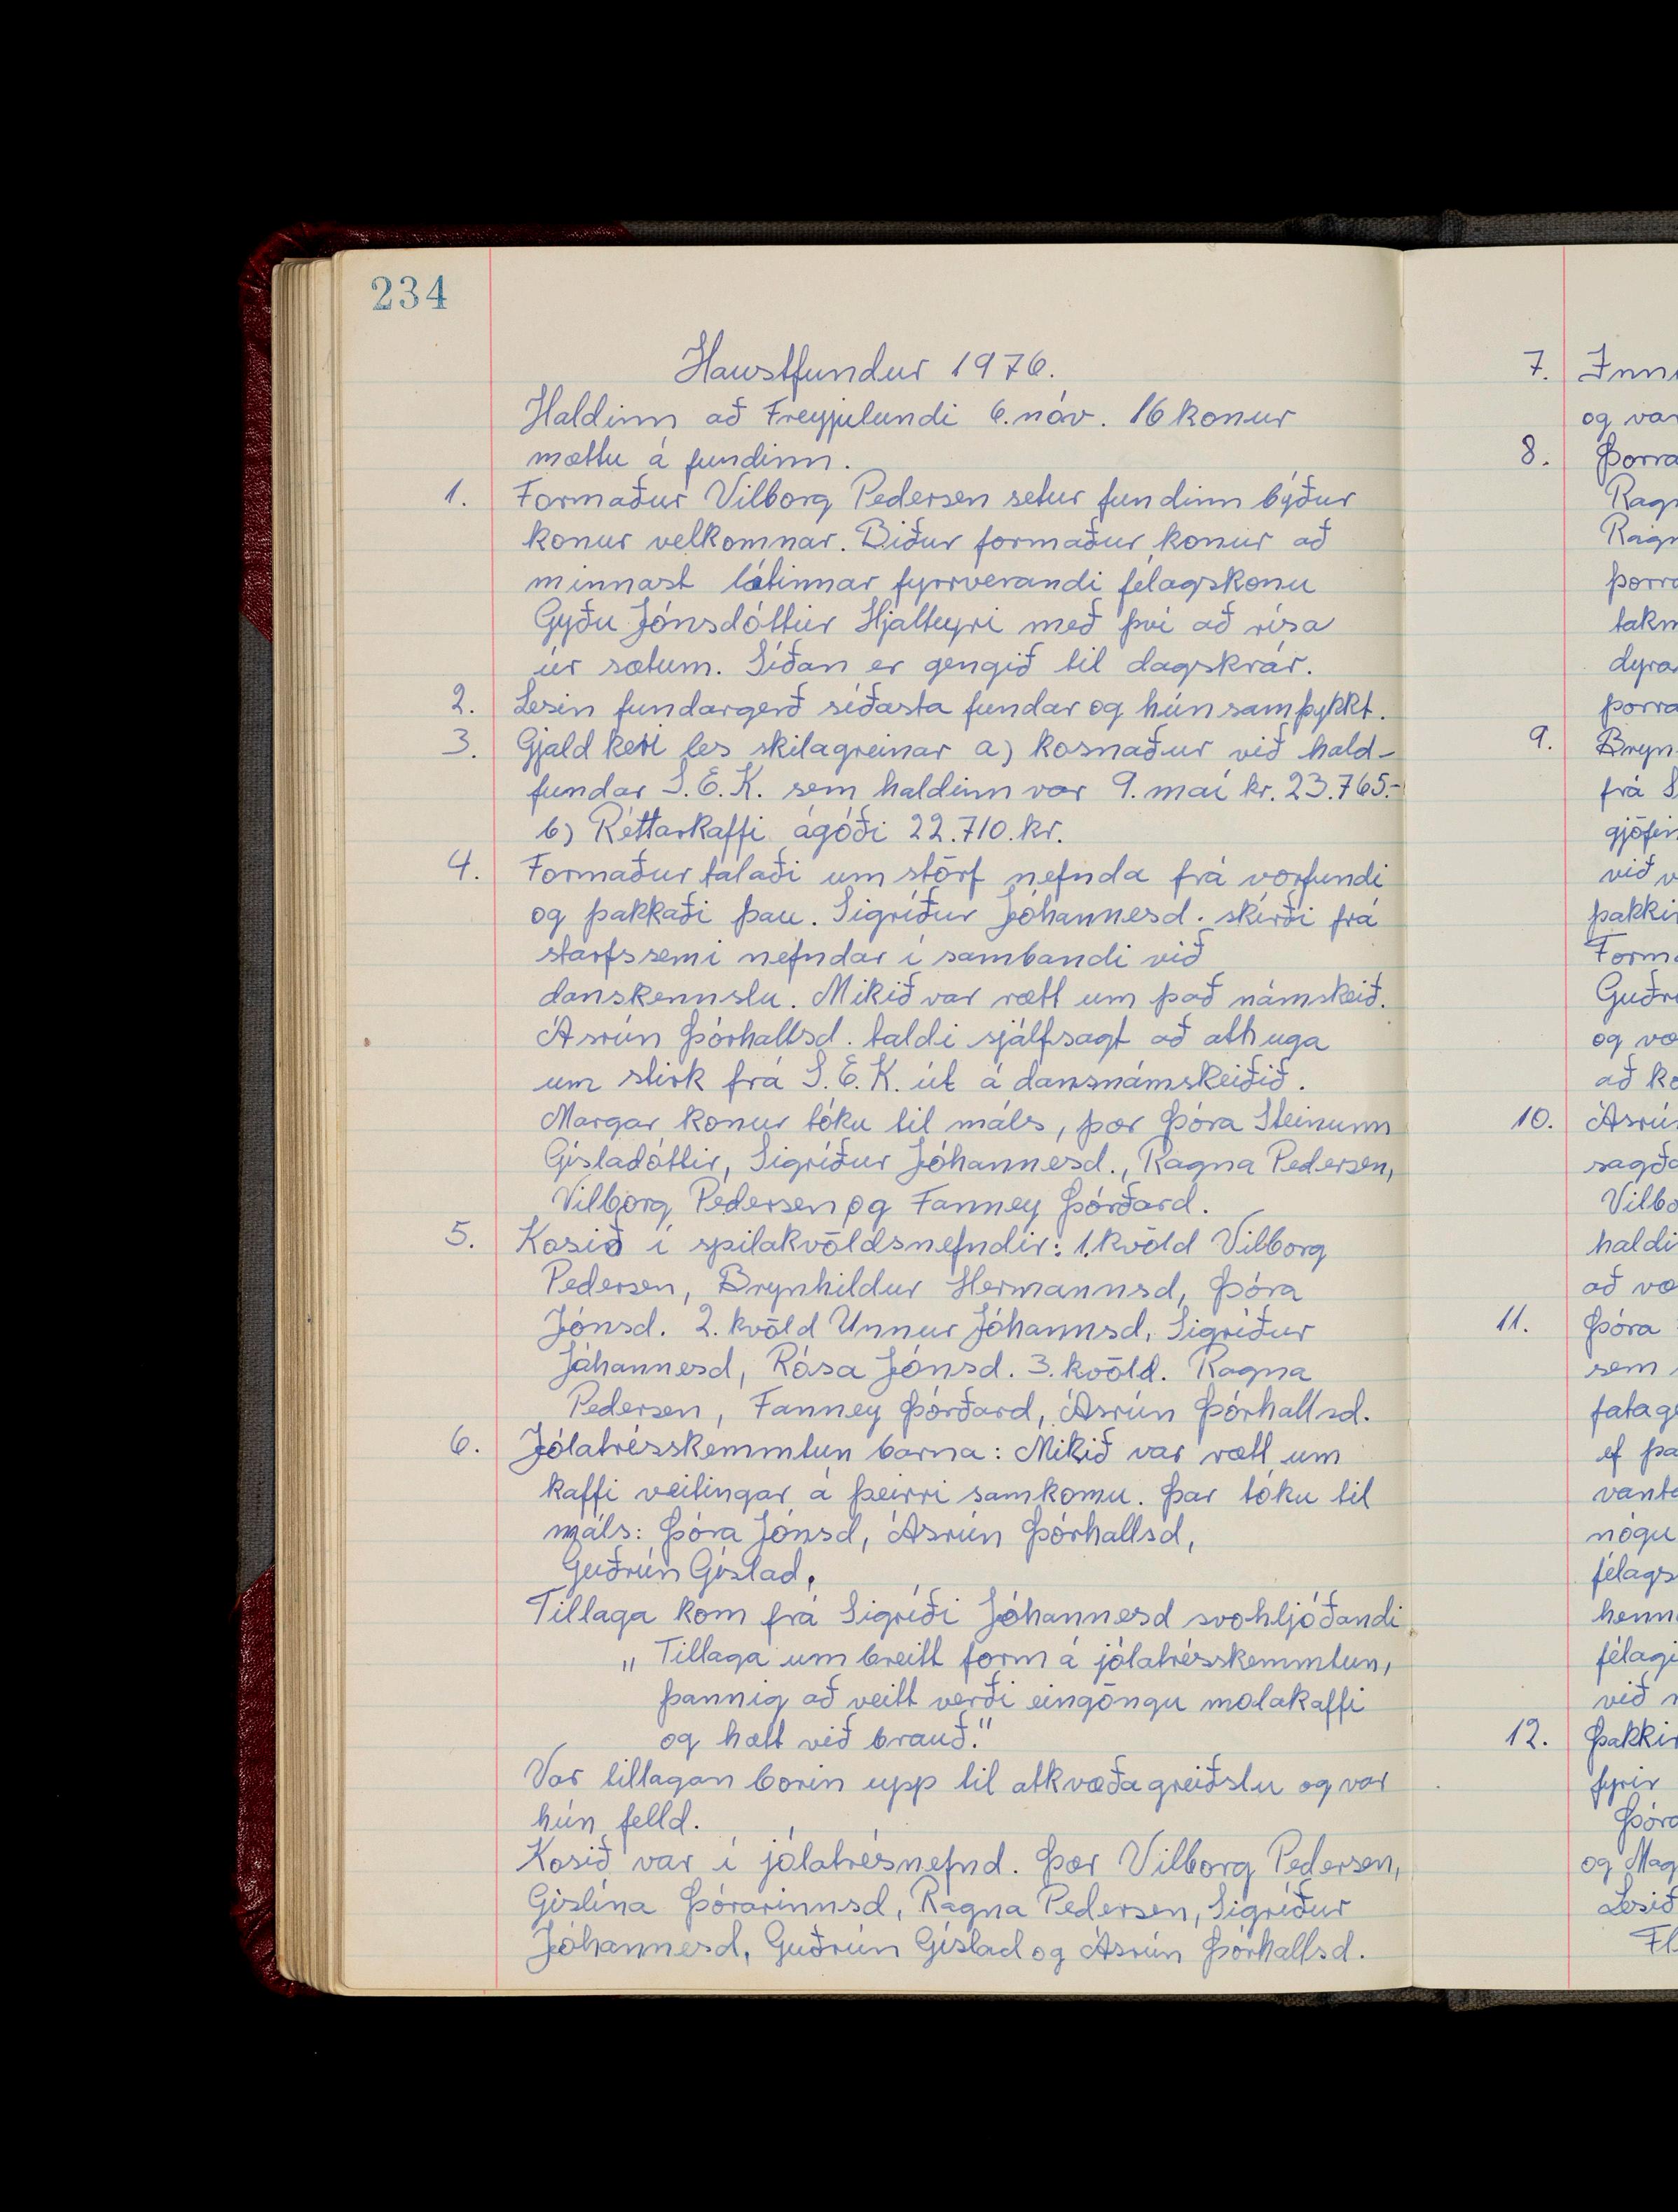 234
Haustfundur 1976.
Haldinn að Freyjulundi 6. nóv. 16 konur
mættu á fundinn.
1. Formaður Vilborg Pedersen setur fundinn býður
konur velkomnar. Biður formaður konur að
minnast látinnar fyrrverandi félagskonu
Gyðu Jónsdóttur Hjalteyri með því að rísa
úr sætum. Síðan er gengið til dagskrár.
2. Lesin fundargerð síðasta fundar og hún samþykkt.
3. Gjaldkeri les skilagreinar a) kosnaður við hald-
fundar S.E.K. sem haldinn var 9. maí kr. 23.765.-
b) Réttarkaffi ágóði 22.710. kr.
4. Formaður talaði um störf nefnda frá vorfundi
og þakkaði þau. Sigríður Jóhannesd. skírði frá
starfssemi nefndar í sambandi við
danskennslu. Mikið var rætt um það námskeið.
Ásrún Þórhallsd. taldi sjálfsagt að athuga
um stirk frá S.E.K. út á dansnámskeiðið.
Margar konur tóku til máls, þær Þóra Steinunn
Gísladóttir, Sigríður Jóhannesd., Ragna Pedersen,
Vilborg Pedersen og Fanney Þórðard.
5. Kosið í spilakvöldsnefndir: 1. kvöld Vilborg
Pedersen, Brynhildur Hermannsd, Þóra
Jónsd. 2. kvöld Unnur Jóhannsd, Sigríður
Jóhannesd, Rósa Jónsd. 3. kvöld. Ragna
Pedersen, Fanney Þórðard, Ásrún Þórhallsd.
6. Jólatrésskemmtun barna: Mikið var rætt um
kaffi veitingar á þeirri samkomu. Þar tóku til
máls: Þóra Jónsd, Ásrún Þórhallsd,
Guðrún Gíslad,
Tillaga kom frá Sigríði Jóhannesd svohljóðandi
„Tillaga um breitt form á jólatrésskemmtun,
þannig að veitt verði eingöngu molakaffi
og hætt við brauð."
Var tillagan borin upp til atkvæðagreiðslu og var
hún felld.
Kosið var í jólatrésnefnd. Þær Vilborg Pedersen,
Gíslína Þórarinnsd, Ragna Pedersen, Sigríður
Jóhannesd, Guðrún Gíslad og Ásrún Þórhallsd.
7.
og var
8.
9.
frá
við
og
að
10.
Vilbo
haldi
að
11. Þóra
sem
ef
félags
við
12.
fyrir
og